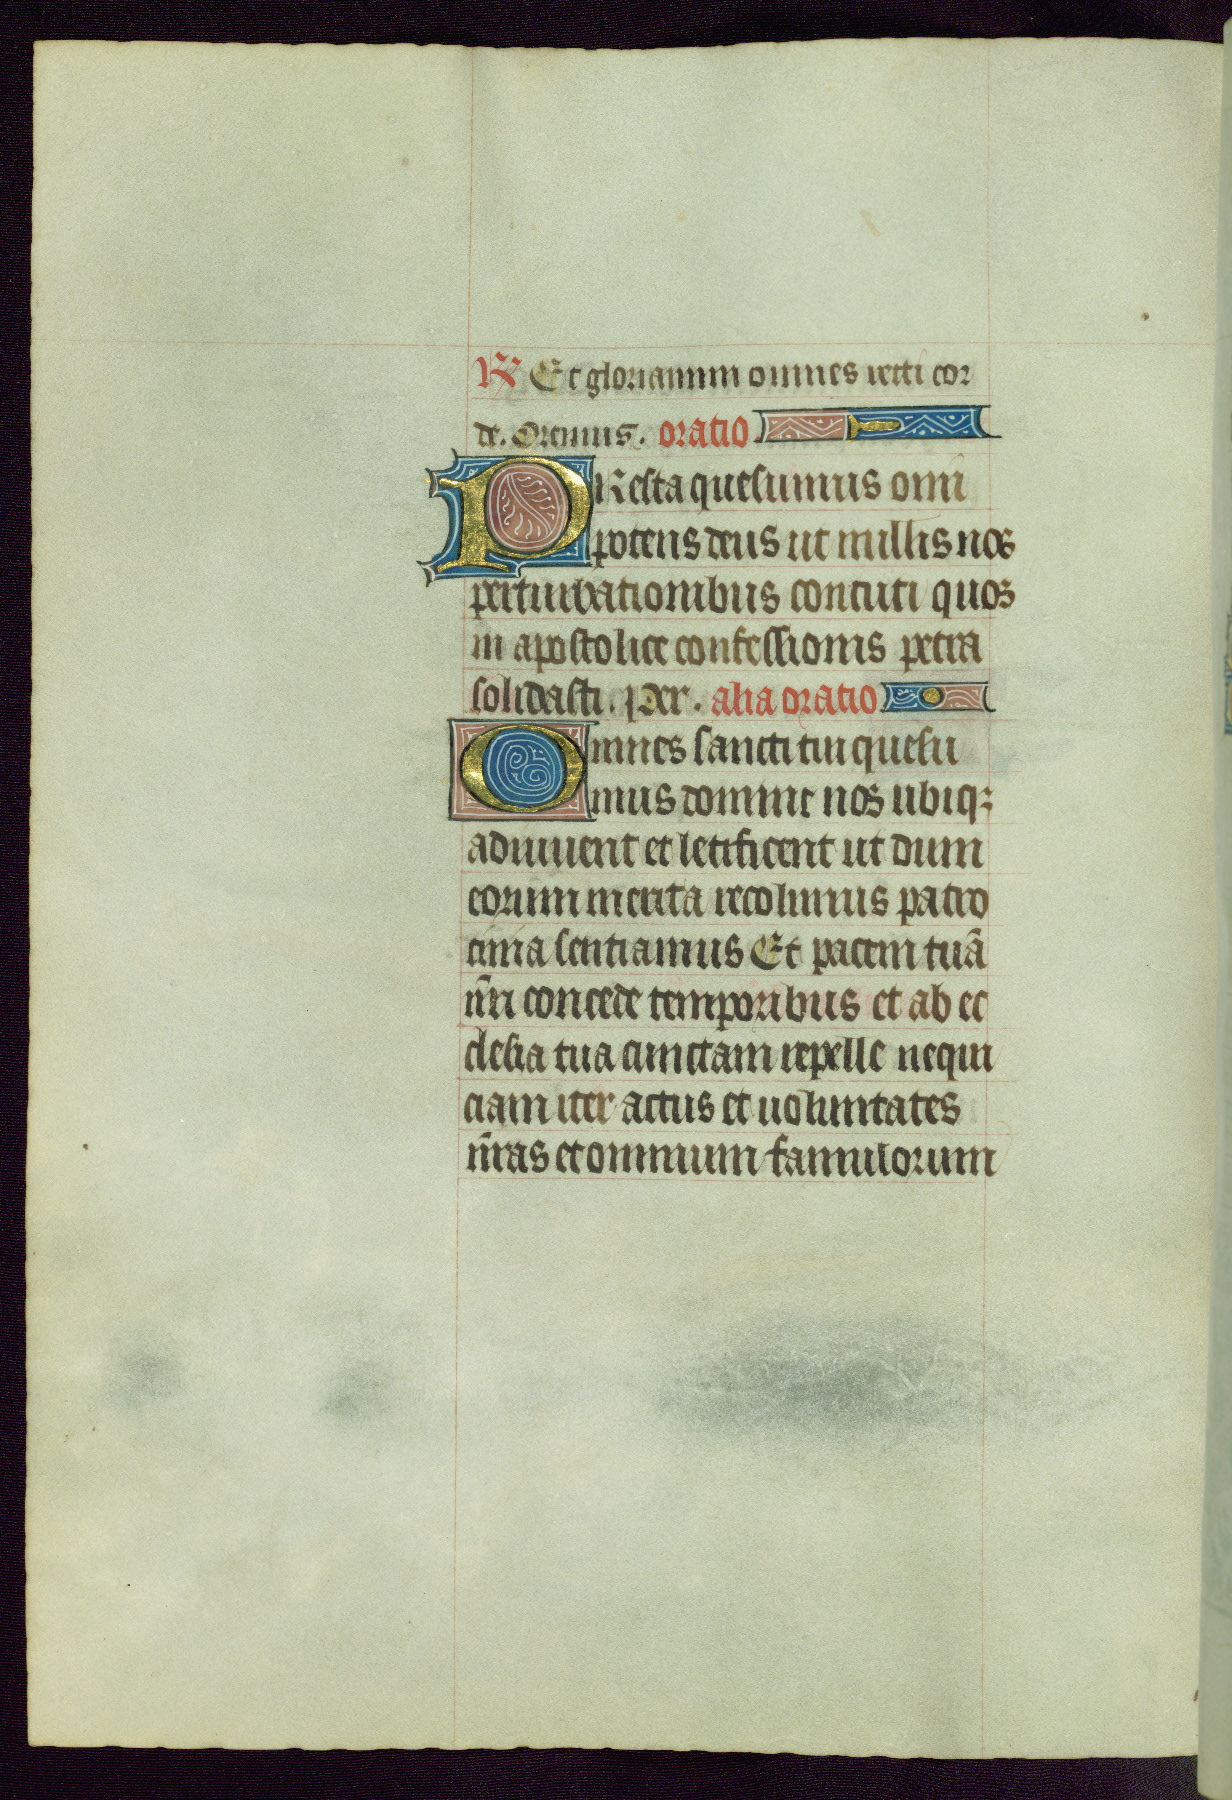 ℟ Et gloriamini omnes recti cor
de. Oremus. oratio
PResta quesumus omni
potens deus ut nullis nos
perturbationibus concuti quos
in apostolice confessionis petra
solidasti. Per. alia oratio
Omnes sancti tui quesu
mus domine nos ubiqꝫ
adiuuent et letificent ut dum
eorum merita recolimus patro
cinia sentiamus Et pacem tuā
nr̄i concede temporibus et ab ec
clesia tua cunctam repelle nequi
ciam iter actus et uoluntates
nr̄as et omnium famulorum